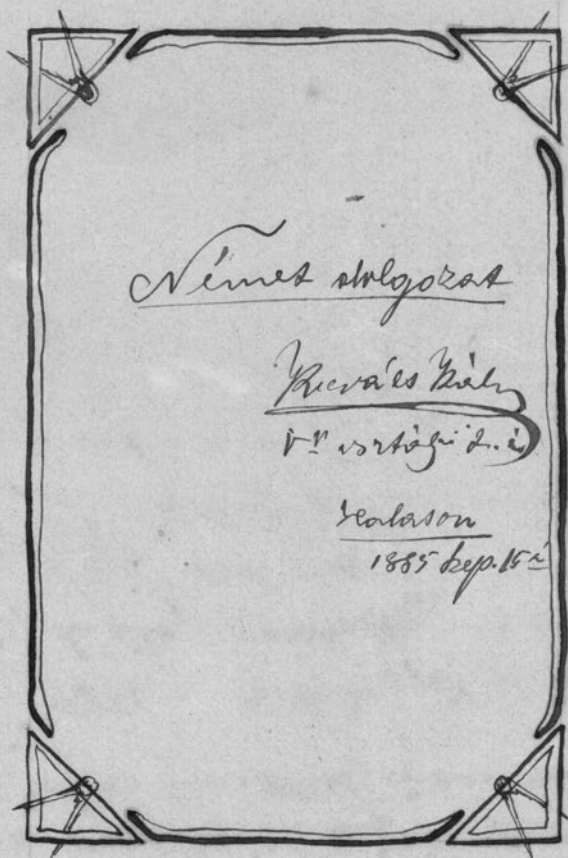 Német dolgozat
Kovács Kálm
Vik osztályú t.
Halason
1885 Szep. 15én